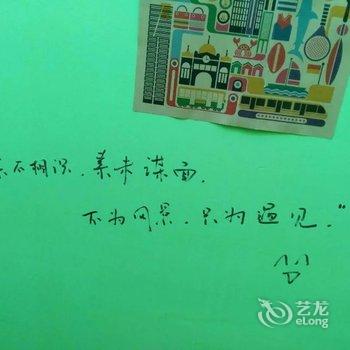 不相识.素未谋面.
不为风景.只为遇见."
艺龙
eLong